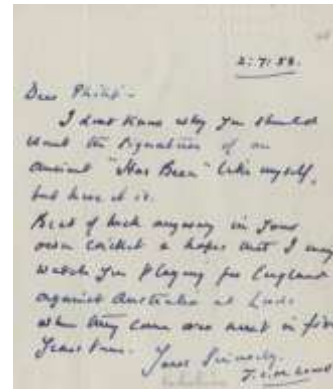 2:7:58.
Dear Philip -
I dont know why you should
want the signature of an
ancient "Has Been" like myself,
but here it is.
Best of luck anyway in your
own cricket & hopes that I may
watch you playing for England
against Australia at Lords
when they come over next in five
years time.
Yours Sincerely.